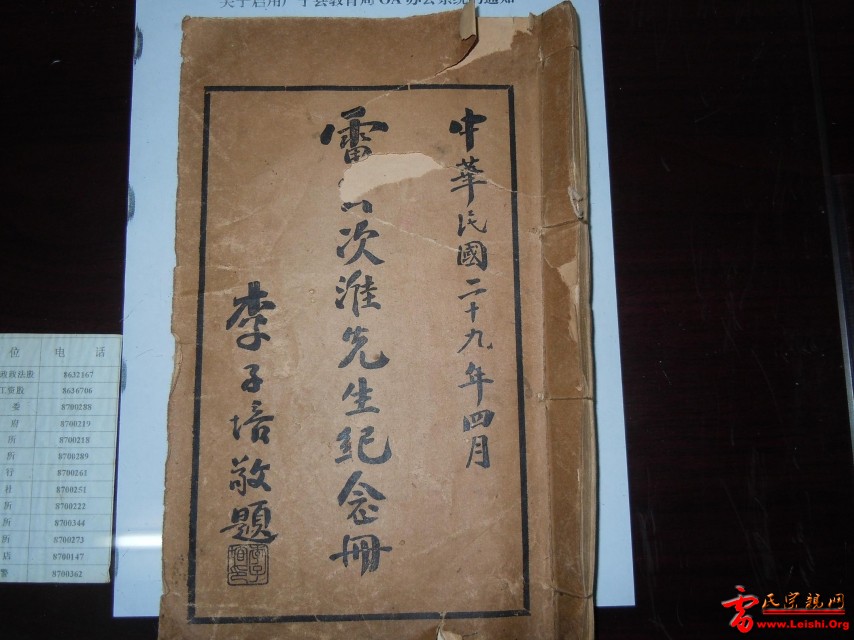 中華民國二十九年四月
雷 次淮先生紀念冊
李子培敬題
位 电 话
政法股 8632167
工资股 8636706
委 8700288
府 8700219
所 8700218
所 8700289
行 8700261
8700251
所 8700222
所 8700344
所 8700273
店 8700147
警 8700362
雷氏宗親网
www.Leishi.Org